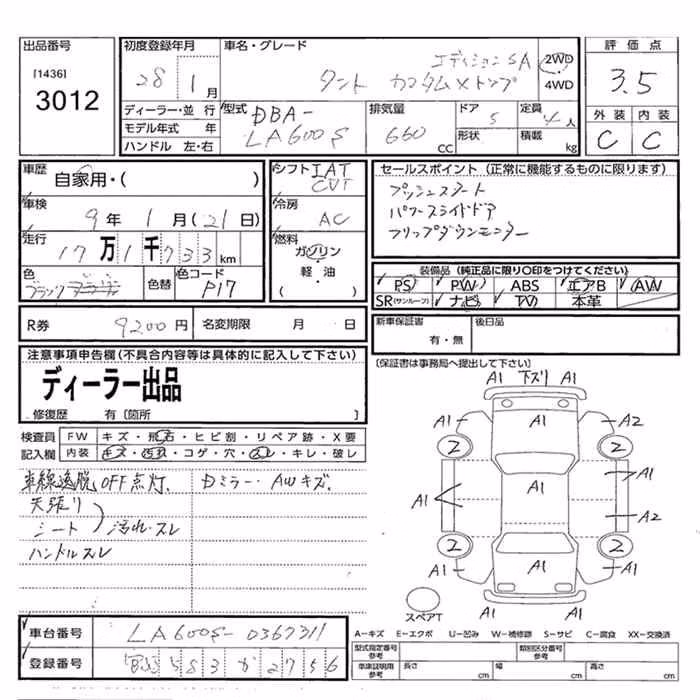 出品番号
[1436]
3012
初度登録年月
28 1月
車名・グレード
エディションSA
タント カスタムXトップ
2WD
4WD
評価点
3.5
外装 内装
C C
ディーラー・並行
モデル年式 年
ハンドル 左・右
型式
DBA-
LA600S
排気量
660 CC
ドア 5
形状
定員 4人
積載 kg
車歴
自家用・( )
車検
9年1月(21日)
走行
17万1千733km
色
ブラック
色替
色コード
P17
シフト IAT
CVT
冷房
AC
燃料
ガソリン
軽・油
( )
セールスポイント (正常に機能するものに限ります)
プッシュスタート
パワースライドドア
フリップダウンモニター
装備品 (純正品に限り○印をつけてください)
PS PW ABS エアB AW
SR(サンルーフ) ナビ TV 本革
R券 9200円
名変期限 月 日
新車保証書
有・無
後日品
(保証書は事務局へ提出して下さい)
注意事項申告欄(不具合内容等は具体的に記入して下さい)
ディーラー出品
修復歴 有〔箇所 〕
検査員
記入欄
FW キズ・飛石・ヒビ割・リペア跡・X要
内装 キズ・汚れ・コゲ・穴・スレ・キレ・破レ
車線逸脱OFF点灯、 Dミラー・AWキズ、
天張り
シート 汚れ・スレ
ハンドルスレ
A1 下ズリ A1
A1 A1 A2
2 2
A1 A1
A1 A1 A2
2 2
A1 A1 A1
スペアT
A1 A1
車台番号 LA600S-0367311
登録番号 583か2756
A-キズ E-エクボ U-凹み W-補修跡 S-サビ C-腐食 XX-交換済
型式指定番号
参考
類別区分番号
参考
車庫証明用
参考
長さ cm
幅 cm
高さ cm